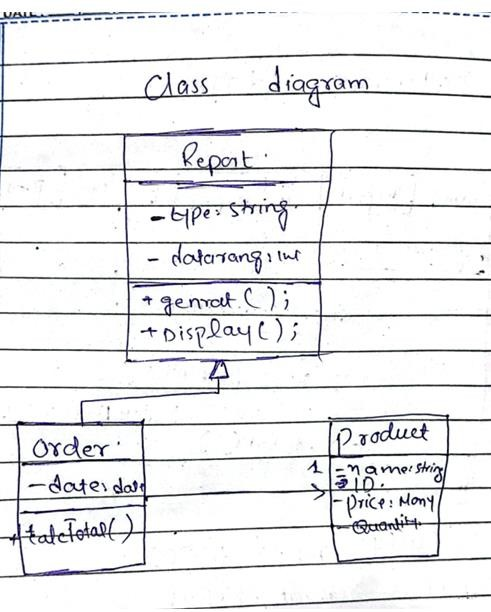 DATE:
Class diagram
Report.
- type: string.
- datarang: int
+ genrat ( );
+ Display ( );
Order.
- date: date
+ calcTotal( )
Product
1
- name: string
ID.
- Price: Mony
- Quantity.